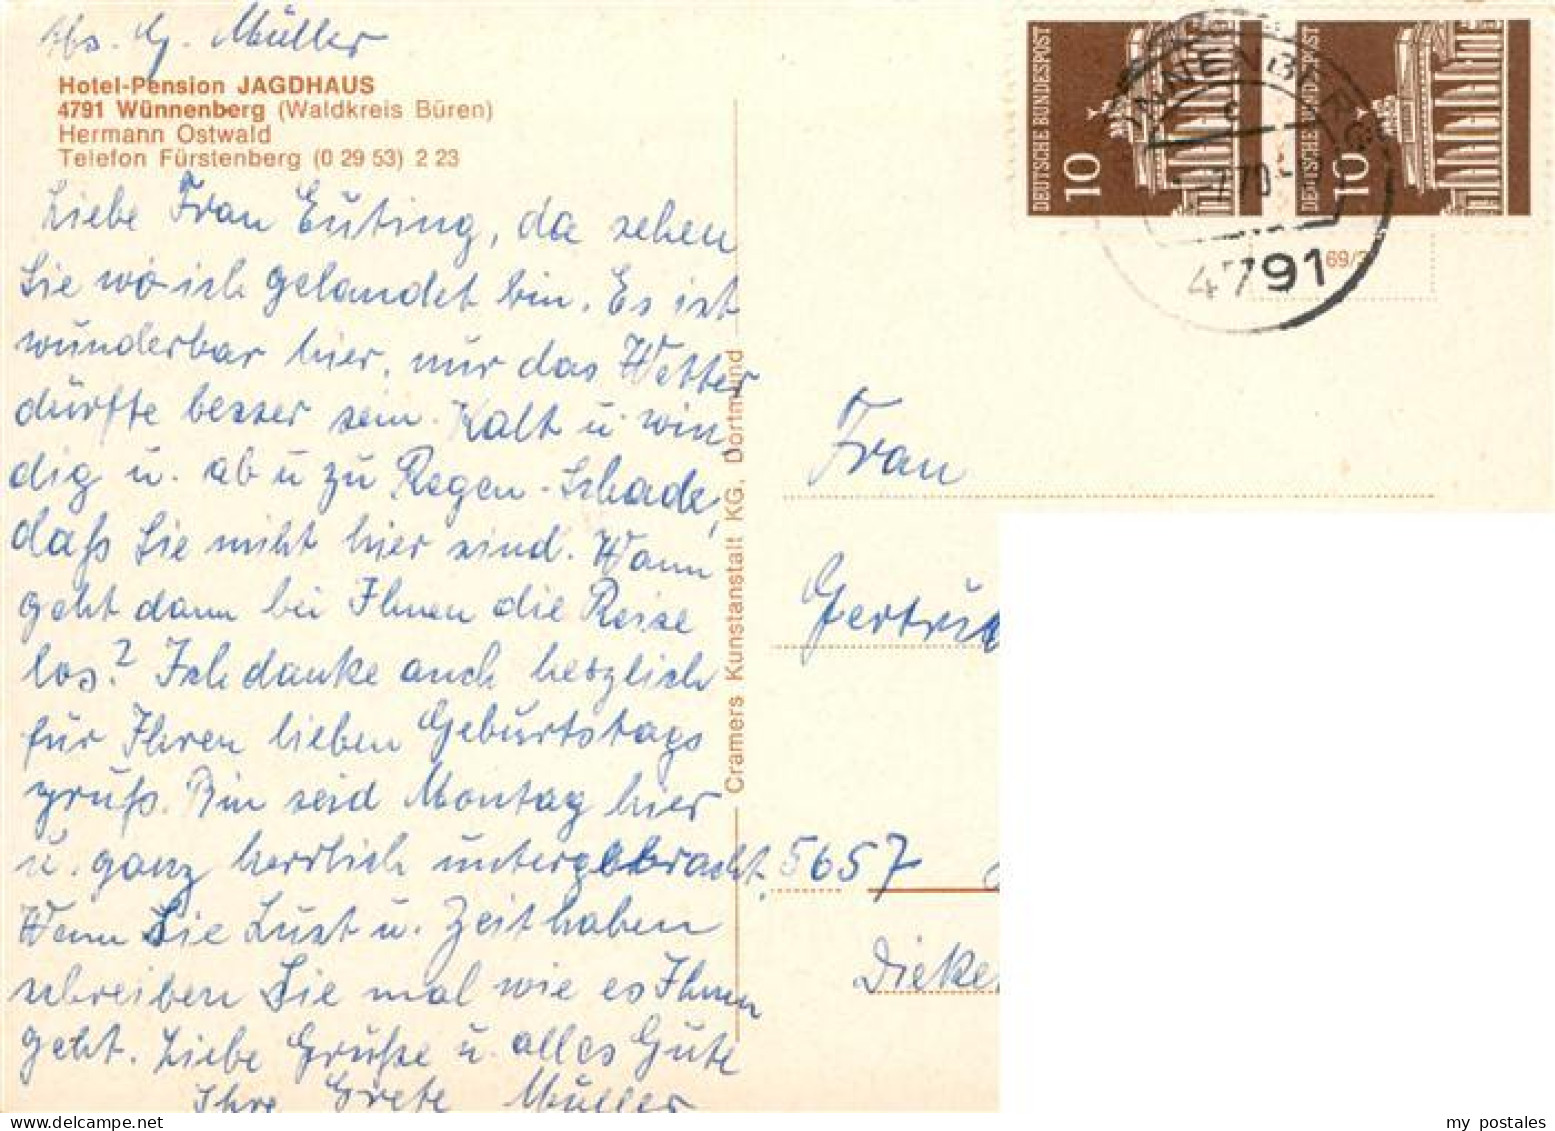 Abs. G. Müller
Hotel-Pension JAGDHAUS
4791 Wünnenberg (Waldkreis Büren)
Hermann Ostwald
Telefon Fürstenberg (0 29 53) 2 23
Liebe Frau Euting, da sehen
Sie wo ich gelandet bin. Es ist
wunderbar hier, nur das Wetter
dürfte besser sein. Kalt u. win
dig u. ab u zu Regen. Schade,
daß Sie nicht hier sind. Wann
geht dann bei Ihnen die Reise
los? Ich danke auch herzlich
für Ihren lieben Geburtstags
gruß. Bin seid Montag hier
u. ganz herrlich untergebracht.
Wenn Sie Lust u. Zeit haben
schreiben Sie mal wie es Ihnen
geht. Liebe Grüße u. alles Gute
Ihre Grete Müller
Cramers Kunstanstalt KG, Dortmund
DEUTSCHE BUNDESPOST
10
DEUTSCHE BUNDESPOST
10
NNENBERG
c
7.70
4791
69/
Frau
Gertrud
5657
Dieke
my postales